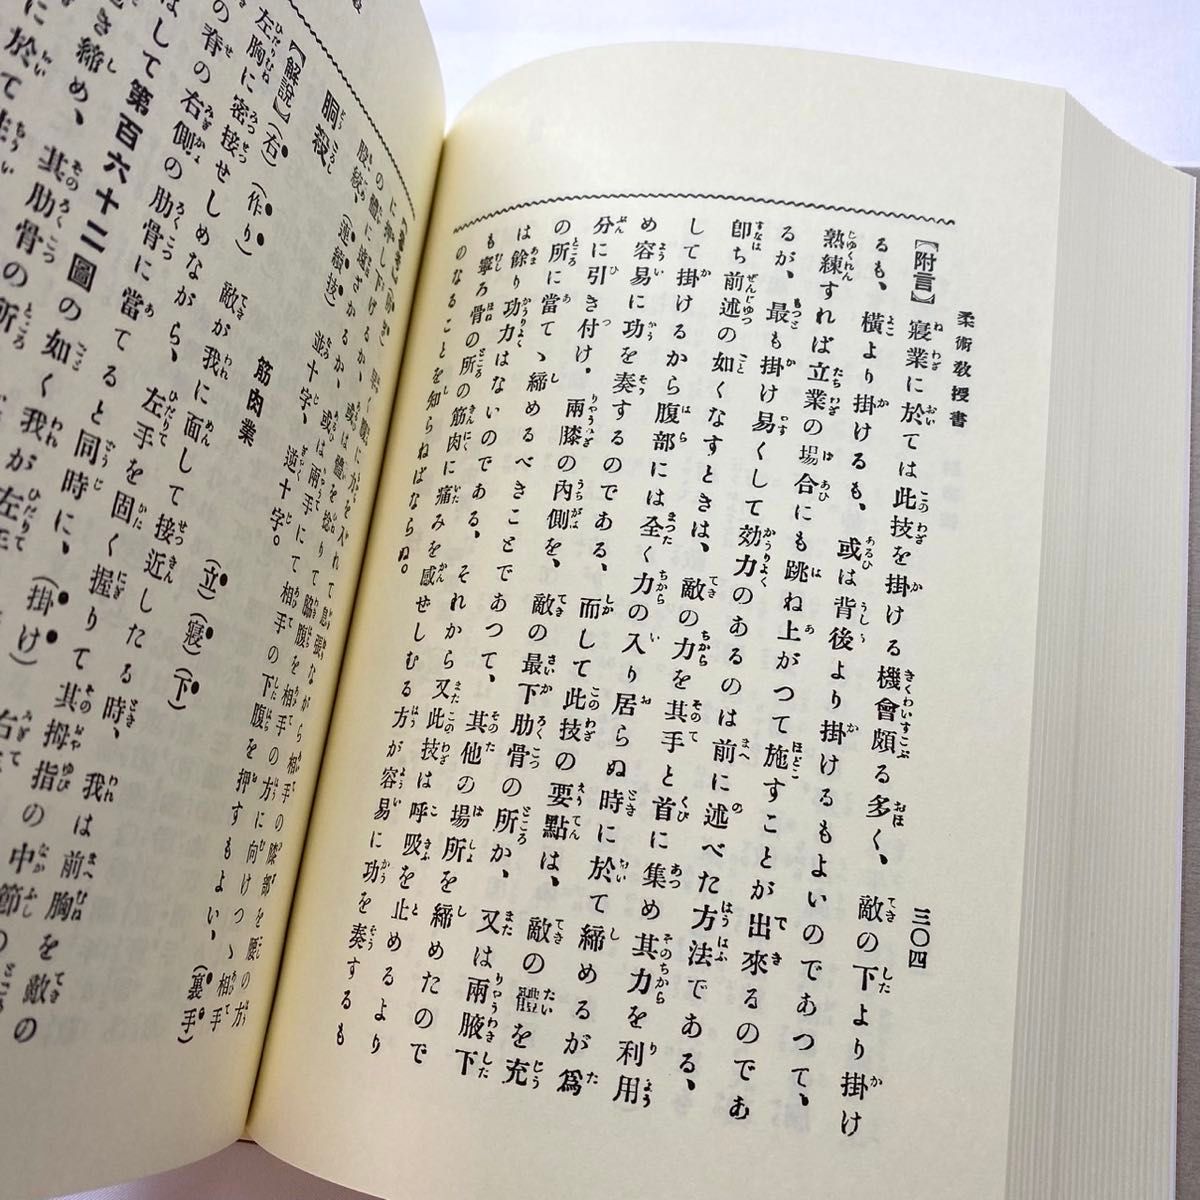 柔術敎授書 三〇四
【附言】寢業に於ては此技を掛ける機會頗る多く、敵の下より掛け
るも、橫より掛けるも、或は背後より掛けるもよいのであつて、
熟練すれば立業の場合にも跳ね上がつて施すことが出來るのであ
るが、最も掛け易くして効力のあるのは前に述べた方法である、
卽ち前述の如くなすときは、敵の力を其手と首に集め其力を利用
して掛けるから腹部には全く力の入り居らぬ時に於て締めるが爲
め容易に功を奏するのである、而して此技の要點は、敵の體を充
分に引き付け、兩膝の內側を、敵の最下肋骨の所か、又は兩腋下
の所に當て、締めるべきことであつて、其他の場所を締めたので
は餘り功力はないのである、それから又此技は呼吸を止めるより
も寧ろ骨の所の筋肉に痛みを感ぜしむる方が容易に功を奏するも
のなることを知らねばならぬ。
に押し下げるか、腹に力を入れて息張ながら相手の膝部を腰の方
の體に遠ざかるか、或は體を捻りて脇腹を相手の方に向けつゝ相手
或は兩手にて相手の下腹を押すもよい、(裏手)
(連續技) 並十字、逆十字。
胴殺 筋肉業 (立)(寢)(下)
【解說】(右)(作り) 敵が我に面して接近したる時、我は前胸を敵の
左胸に密接せしめながら、左手を固く握りて其拇指の中節の
の脊の右側の肋骨に當てると同時に、(掛け) 右
はして第百六十二圖の如く我が左手
き締め、其肋骨の所
に於て